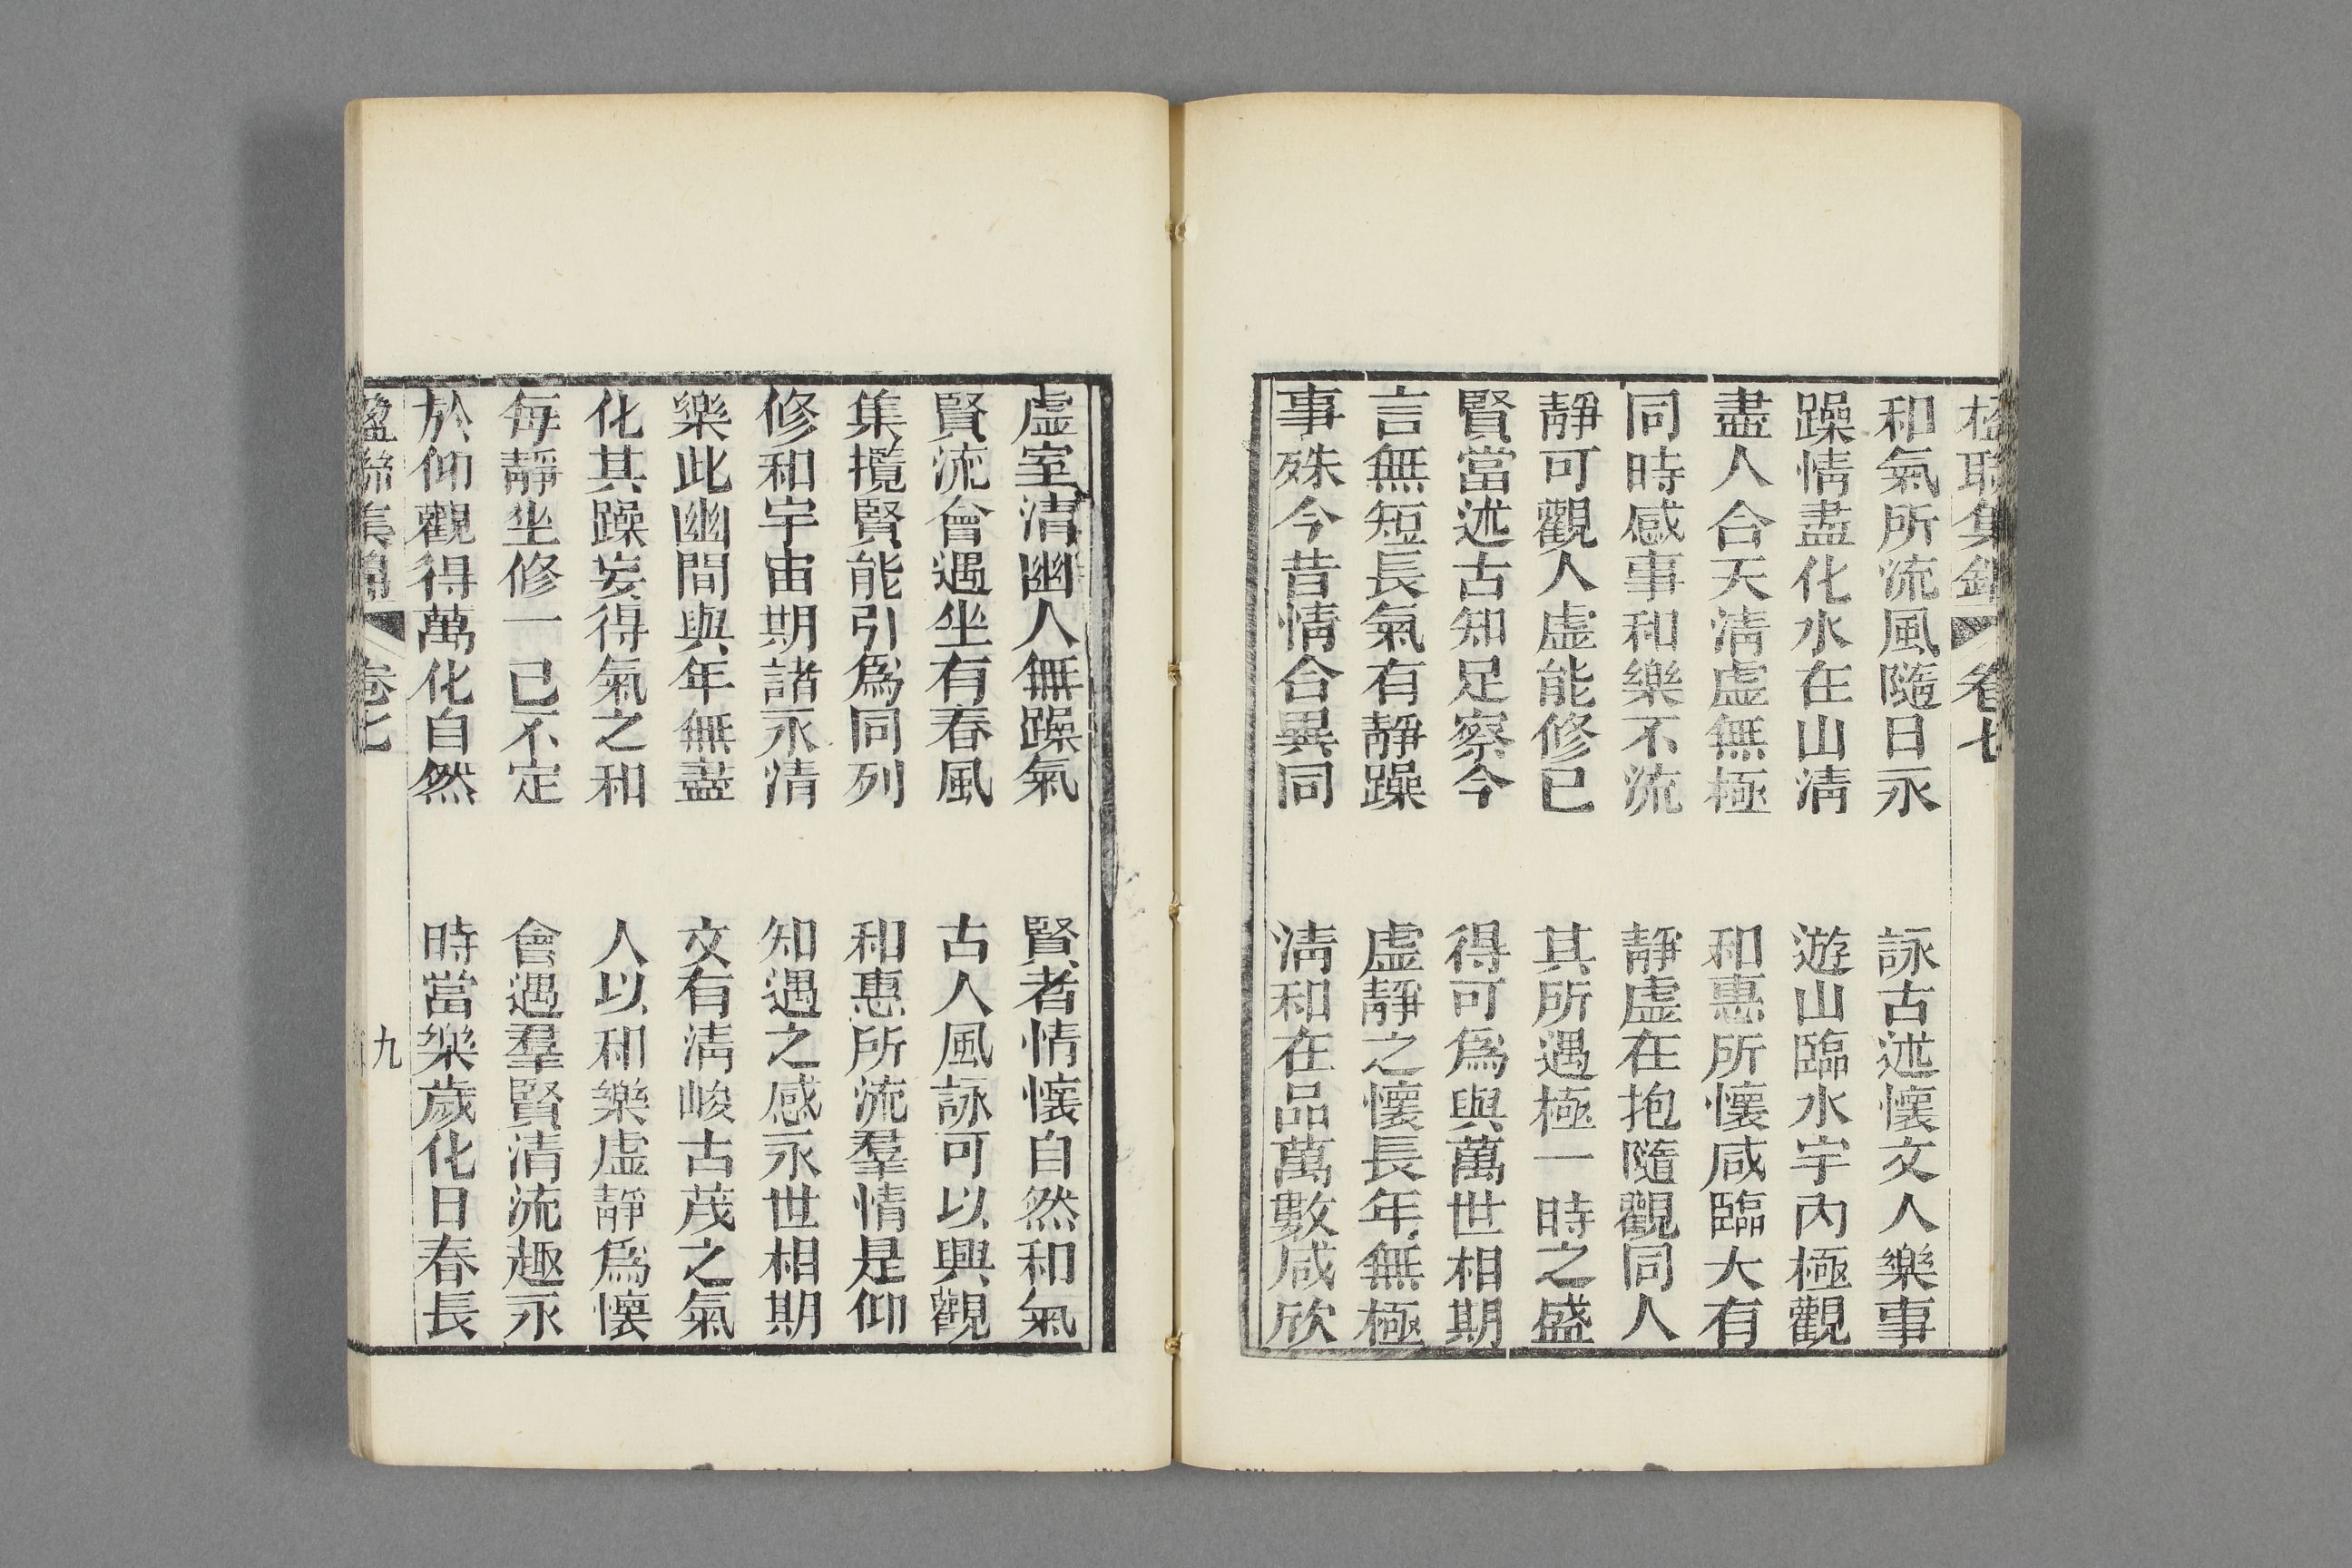 和氣所流風隨日永　詠古述懷文人樂事
躁情盡化水在山清　遊山臨水宇內極觀
盡人合天清虛無極　和惠所懷咸臨大有
同時感事和樂不流　靜虛在抱隨觀同人
靜可觀人虛能修已　其所遇極一時之盛
賢當述古知足察今　得可爲與萬世相期
言無短長氣有靜躁　虛靜之懷長年無極
事殊今昔情合異同　清和在品萬數咸欣
虛室清幽人無躁氣　賢者情懷自然和氣
賢流會遇坐有春風　古人風詠可以興觀
集攬賢能引爲同列　和惠所流羣情是仰
修和宇宙期諸永清　知遇之感永世相期
樂此幽間與年無盡　文有清峻古茂之氣
化其躁妄得氣之和　人以和樂虛靜爲懷
每靜坐修一己不定　會遇羣賢清流趣永
於仰觀得萬化自然　時當樂歲化日春長
卷七
九